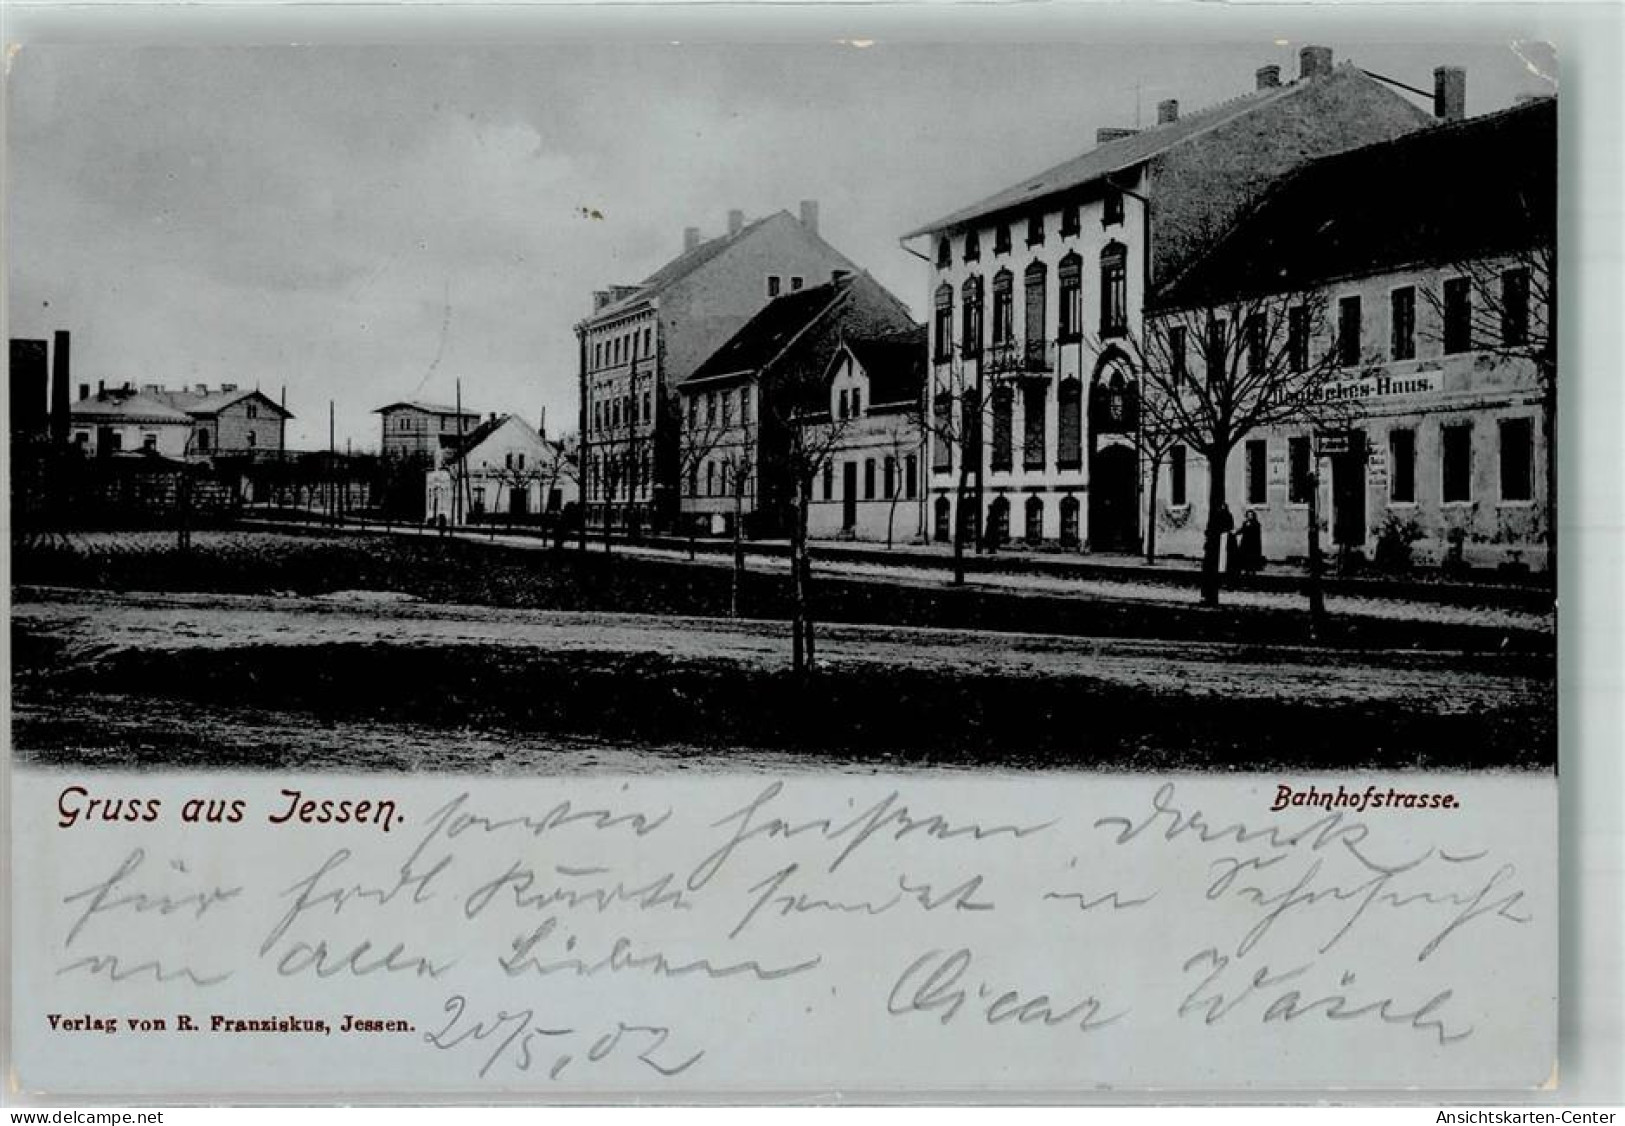 Deutsches-Haus.
Gruss aus Jessen.
Bahnhofstrasse.
sowie heißen Dank
für frdl Karte sendet in Sehnsucht
an alle Lieben Oscar
Verlag von R. Franziskus, Jessen.
20/5.02
delcampe.net
Ansichtskarten-Center